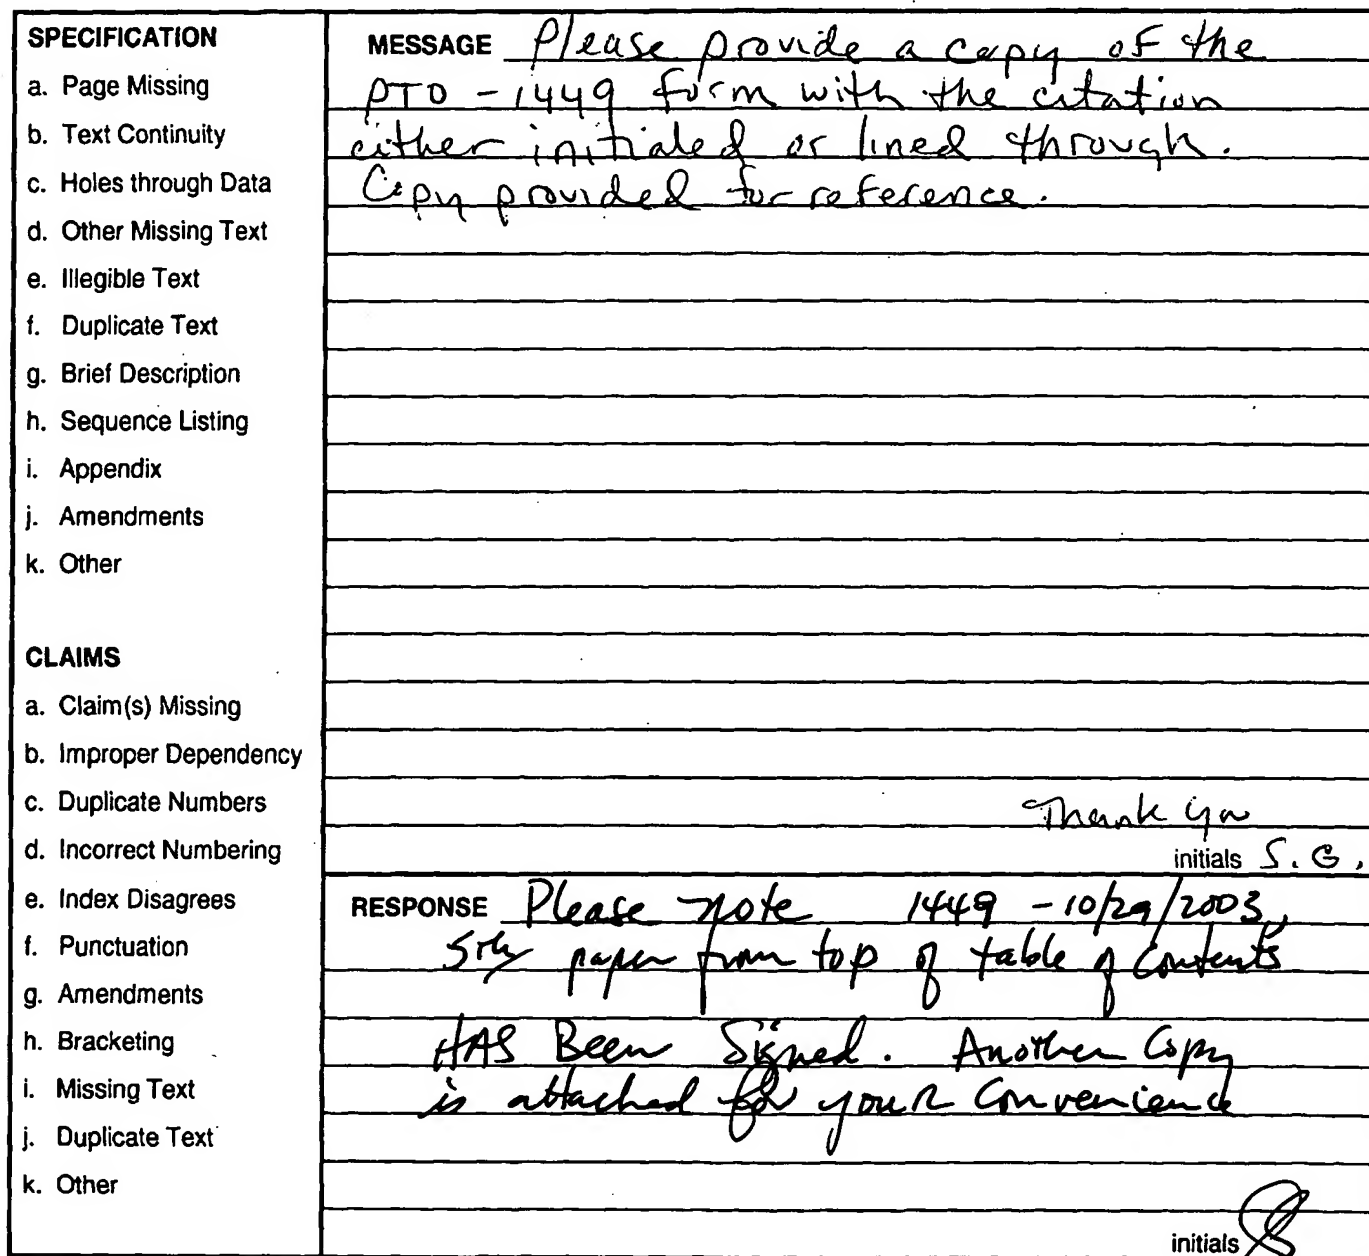 SPECIFICATION
a. Page Missing
b. Text Continuity
c. Holes through Data
d. Other Missing Text
e. Illegible Text
f. Duplicate Text
g. Brief Description
h. Sequence Listing
i. Appendix
j. Amendments
k. Other
CLAIMS
a. Claim(s) Missing
b. Improper Dependency
c. Duplicate Numbers
d. Incorrect Numbering
e. Index Disagrees
f. Punctuation
g. Amendments
h. Bracketing
i. Missing Text
j. Duplicate Text
k. Other
MESSAGE Please provide a copy of the
PTO-1449 form with the citation
either initialed or lined through.
Copy provided for reference.
Thank you
initials S.G.
RESPONSE Please note 1449 - 10/29/2003,
paper from top of table of contents
HAS Been Signed. Another Copy
is attached for your convenience
initials